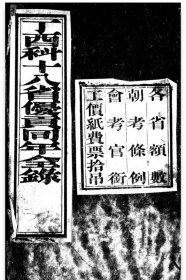 各省額數
朝考條例
會考官銜
工價紙費票拾吊
丁酉科十八省優貢同年全錄